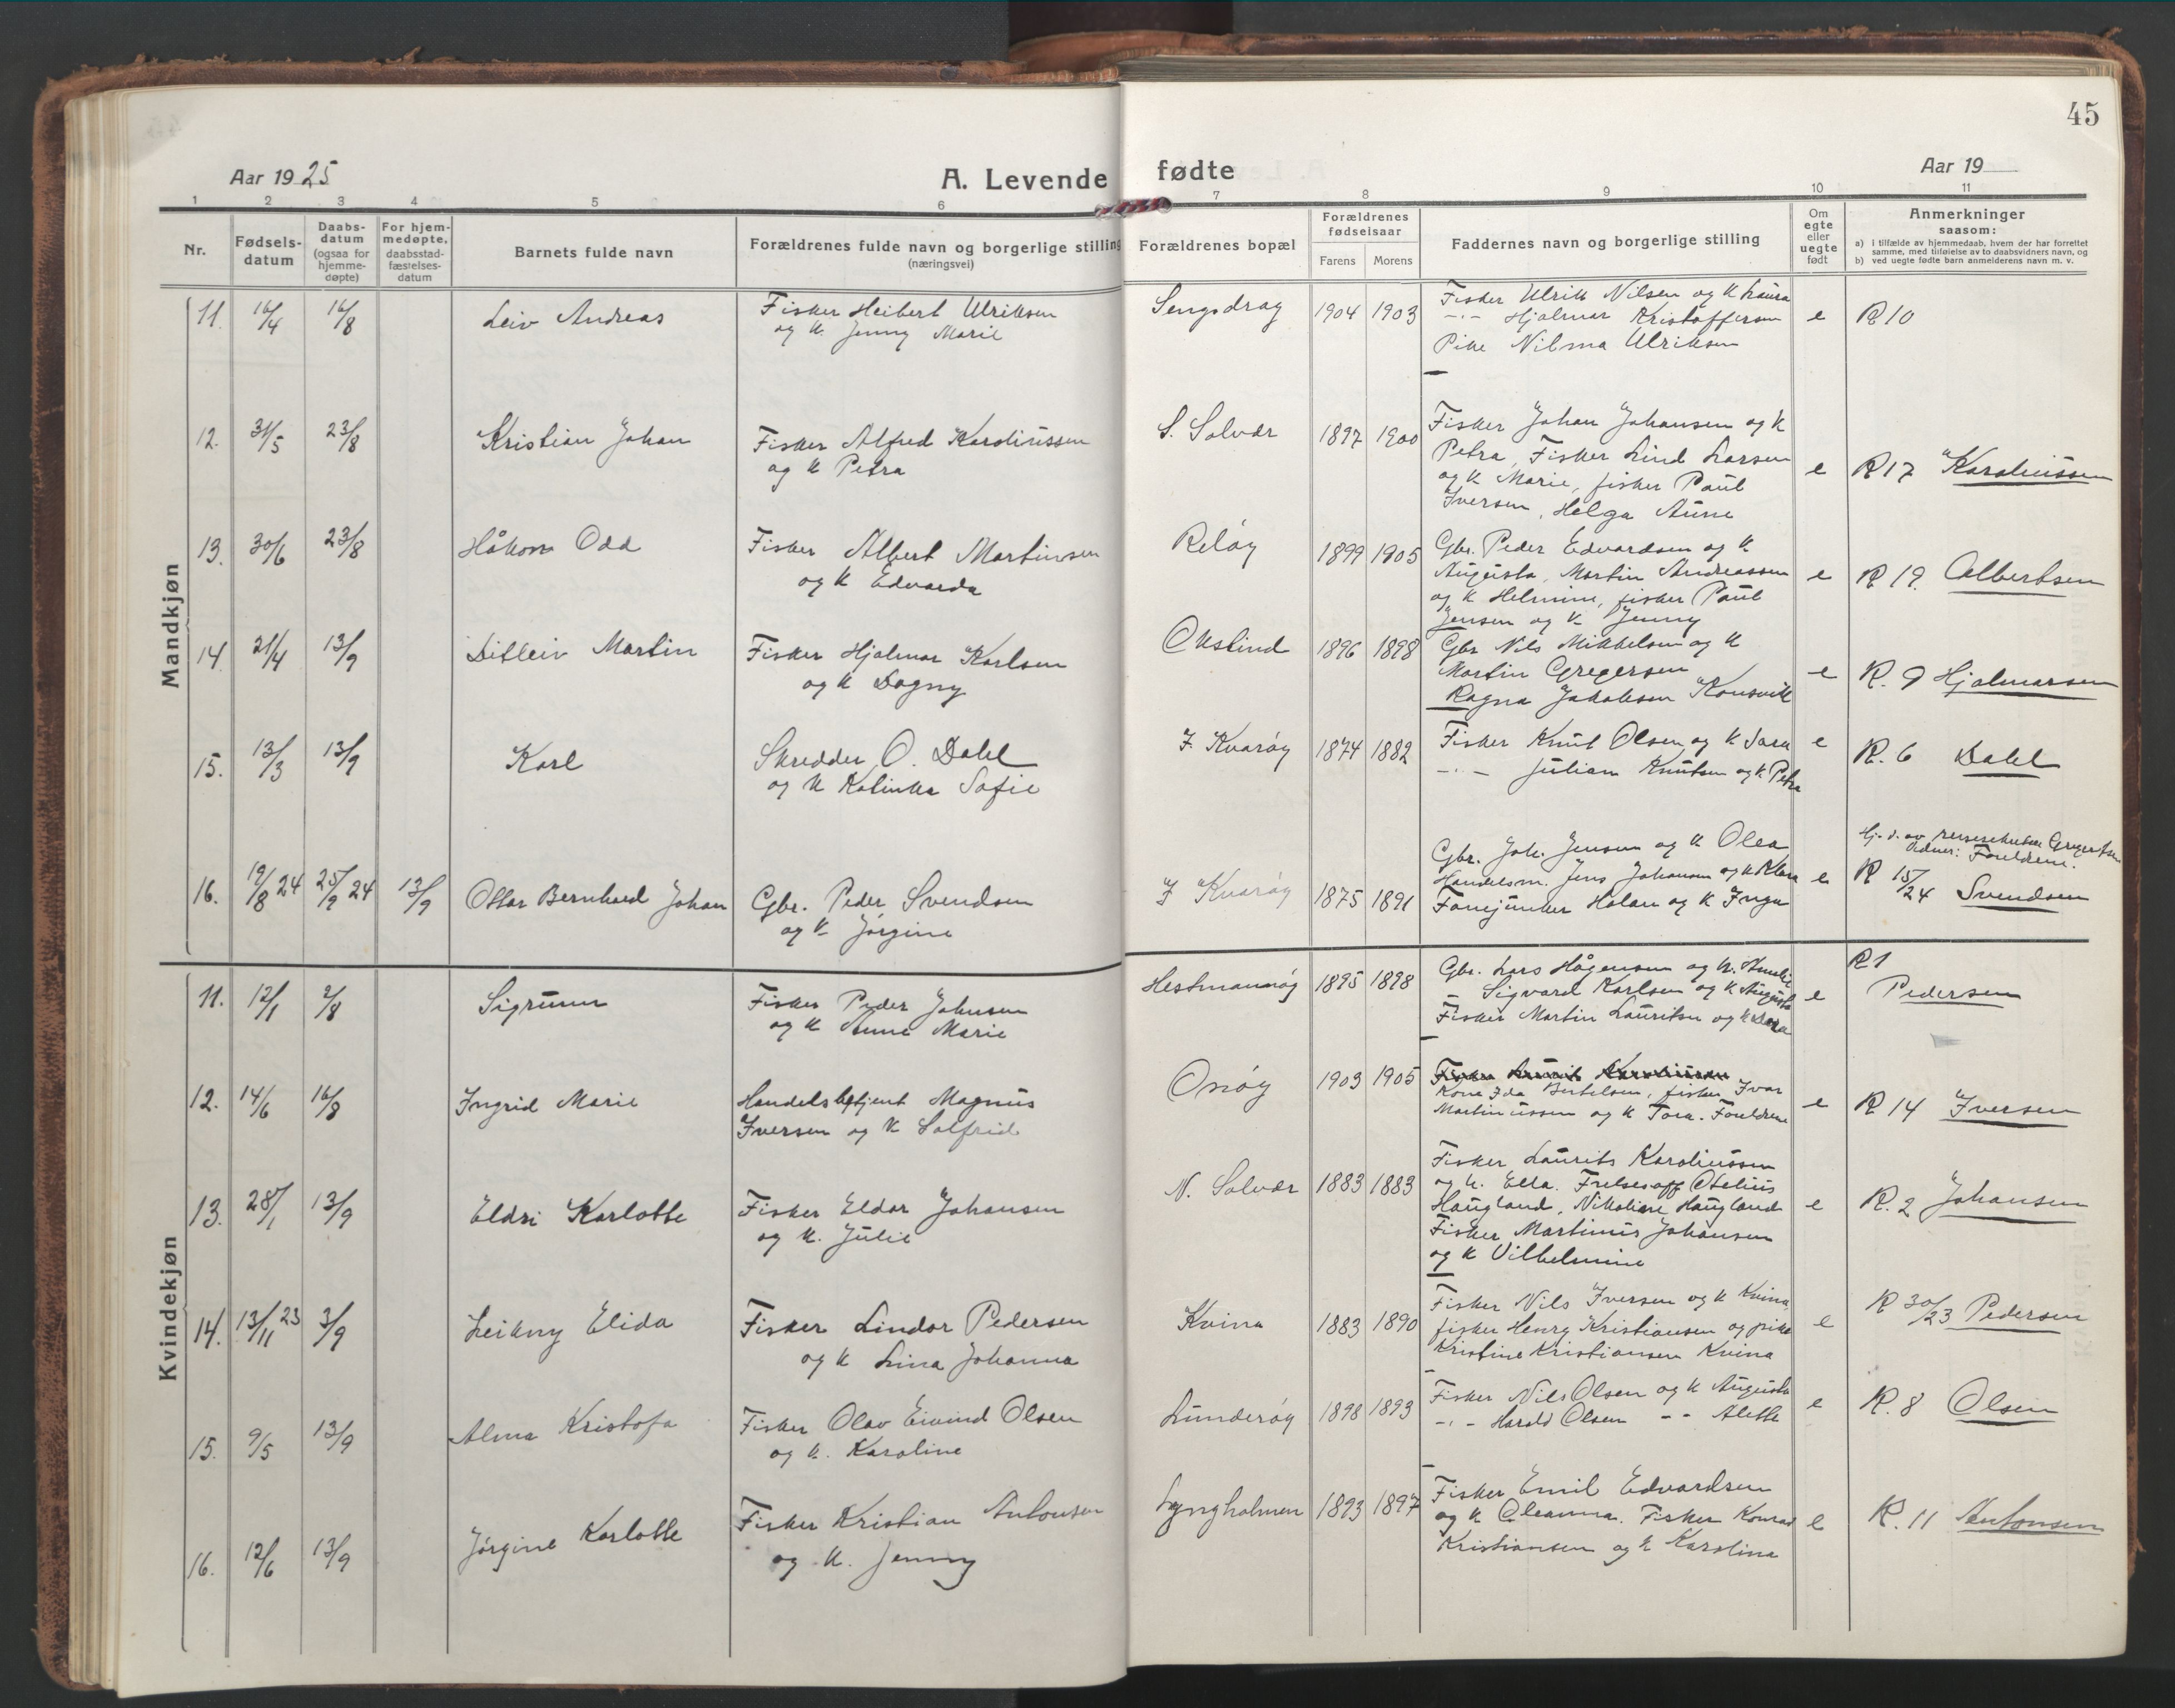 45
Aar 1925 A. Levende fødte Aar 19
1 2 3 4 5 6 7 8 9 10 11
Nr. Fødselsdatum Daabsdatum (ogsaa for hjemmedøpte) For hjemmedøpte, daabsstadfæstelsesdatum Barnets fulde navn Forældrenes fulde navn og borgerlige stilling (næringsvei) Forældrenes bopæl Forældrenes fødselsaar Farens Morens Faddernes navn og borgerlige stilling Om egte eller uegte født Anmerkninger saasom:
a) i tilfælde av hjemmedaab, hvem der har forrettet samme, med tilføielse av to daabsvidners navn, og
b) ved uegte fødte barn anmelderens navn m. v.
Mandkjøn
11. 16/4 16/8 Leiv Andreas Fisker Heibert Ulriksen Sengsdrag 1904 1903 Fisker Ulrik Nilsen og k Laura e R 10
og k. Jenny Marie -·- Hjalmar Kristoffersen
Pike Nilma Ulriksen
12. 31/5 23/8 Kristian Johan Fisker Alfred Karoliussen S. Solvær 1897 1900 Fisker Johan Johansen og k
og k Petra Petra, Fisker Lind Larsen e R 17 Karoliussen
og k Marie, fisker Paul
Iversen, Helga Aune
13. 30/6 23/8 Håkon Odd Fisker Albert Martinsen Reløy 1899 1905 Gbr. Peder Edvardsen og k
og k Edvarda Augusta, Martin Andreassen e R 19. Albertsen
og k Helmine, fisker Paul
Jensen og k Jenny
14. 21/4 13/9 Ditleiv Martin Fisker Hjalmar Karlsen Okstind 1896 1898 Gbr Nils Mikkelsen og k
og k Dagny Martin Gregersen e R. 9 Hjalmarsen
Ragna Jakobsen Konsvik
15. 13/3 13/9 Karl Skredder O. Dahl I. Kvarøy 1874 1882 Fisker Knut Olsen og k Sara e R. 6 Dahl
og k Kalinka Sofie -·- Julian Knutsen og k. Petra
16. 19/8 24 25/9 24 13/9 Ottar Bernhard Johan Gbr. Peder Svendsen I Kvarøy 1875 1891 Gbr. Joh. Jensen og k Olea Hj. d. av
og k Jørgine Handelsm. Jens Johansen og k Klara e R 15/24 Svendsen
Fanejunker Holan og k Inga
Kvindekjøn
11. 12/1 2/8 Sigrunn Fisker Peder Johnsen Hestmannøy 1895 1898 Gbr. Lars Hågensen og k. Amalie R 1
og k Anne Marie Sigvard Karlsen og k Augusta e Pedersen
Fisker Martin Lauritsen og k
12. 14/6 16/8 Ingrid Marie Handelsbetjent Magnus Onøy 1903 1905
Iversen og k Solfrid Kona Ida Bertelsen, fisker Ivar
Martinussen og k Tora. Foreldrene e R 14 Iversen
13. 28/1 13/9 Eldri Karlotte Fisker Eldar Johansen N. Solvær 1883 1883 Fisker Laurits Karoliussen
og k. Julie og k. Ella. Frelsesoff Otelius
Haugland, Nikoline Haugland e R. 2 Johansen
Fisker Martinus Johansen
og k Vilhelmine
14. 13/11 23 3/9 Leikny Elida Fisker Lindor Pedersen Kvina 1883 1890 Fisker Nils Iversen og k Kvina,
og k Lina Johanna fisker Henry Kristiansen og pike e R 30/23 Pedersen
Kristine Kristiansen Kvina
15. 9/5 13/9 Alma Kristofa Fisker Olav Eivind Olsen Lunderøy 1898 1893 Fisker Nils Olsen og k Augusta e R. 8 Olsen
og k. Karoline -·- Harald Olsen - - Alette
16. 12/6 13/9 Jørgine Karlotte Fisker Kristian Antonsen Lyngholmen 1893 1897 Fisker Emil Edvardsen
og k. Jenny og k Oleanna. Fisker Konrad e R. 11 Antonsen
Kristiansen og k Karolina